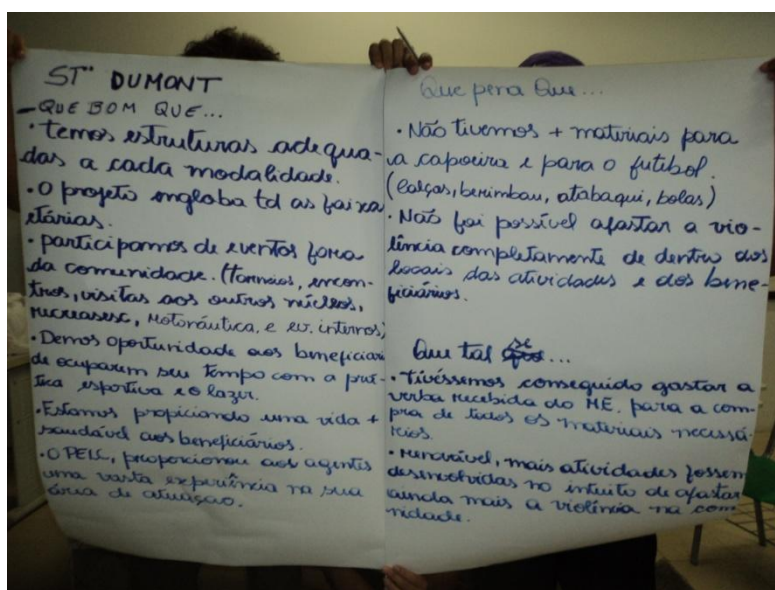 STº DUMONT
- QUE BOM QUE...
• temos estruturas adequa-
das a cada modalidade.
• O projeto engloba td as faixa
etárias.
• participamos de eventos fora
da comunidade. (torneios, encon-
tros, visitas aos outros núcleos,
recreasesc, motonáutica, e ev. internos)
• Demos oportunidade aos beneficiari
de ocuparem seu tempo com a prá-
tica esportiva e o lazer.
• Estamos propiciando uma vida +
saudável aos beneficiários.
• O PELC, proporcionou aos agentes
uma vasta experiência na sua
área de atuação.
Que pena Que...
• Não tivemos + materiais para
a capoeira e para o futebol.
(calças, berimbau, atabaqui, bolas)
• Não foi possível afastar a vio-
lência completamente de dentro dos
locais das atividades e dos bene-
ficiários.
Que tal se...
• Tivéssemos conseguido gastar a
verba recebida do ME. para a com-
pra de todos os materiais necessá-
rios.
• renovável, mais atividades fossem
desenvolvidas no intuito de afastar
ainda mais a violência na com
nidade.